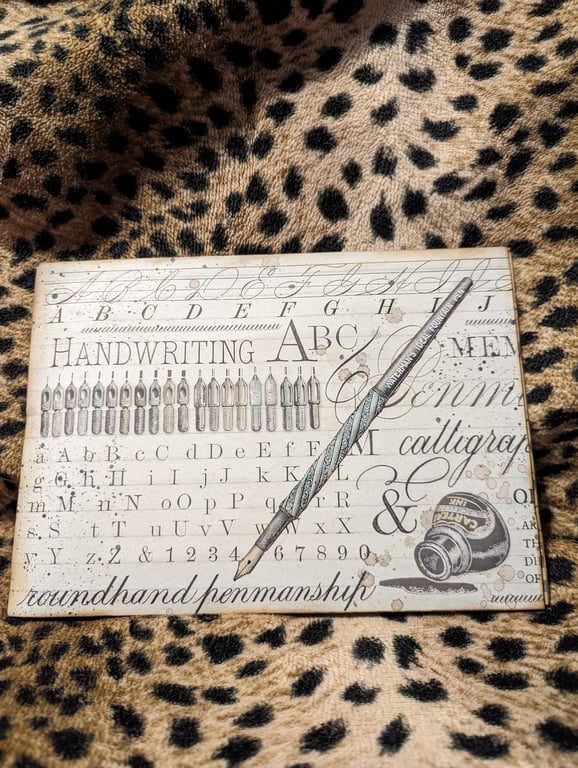 A B C D E F G H I J
A B C D E F G H I J
HANDWRITING ABC
MEN
WATERMAN'S IDEAL FOUNTAIN PEN
Penm
a A b B c C d D e E f F M
calligrap
g G h H i I j J k K L
m M n N o O p P q r R
&
s S t T u U v V w W x X
y Y z Z & 1 2 3 4 5 6 7 8 9 0
CARTER'S
INK
OF
roundhand penmanship